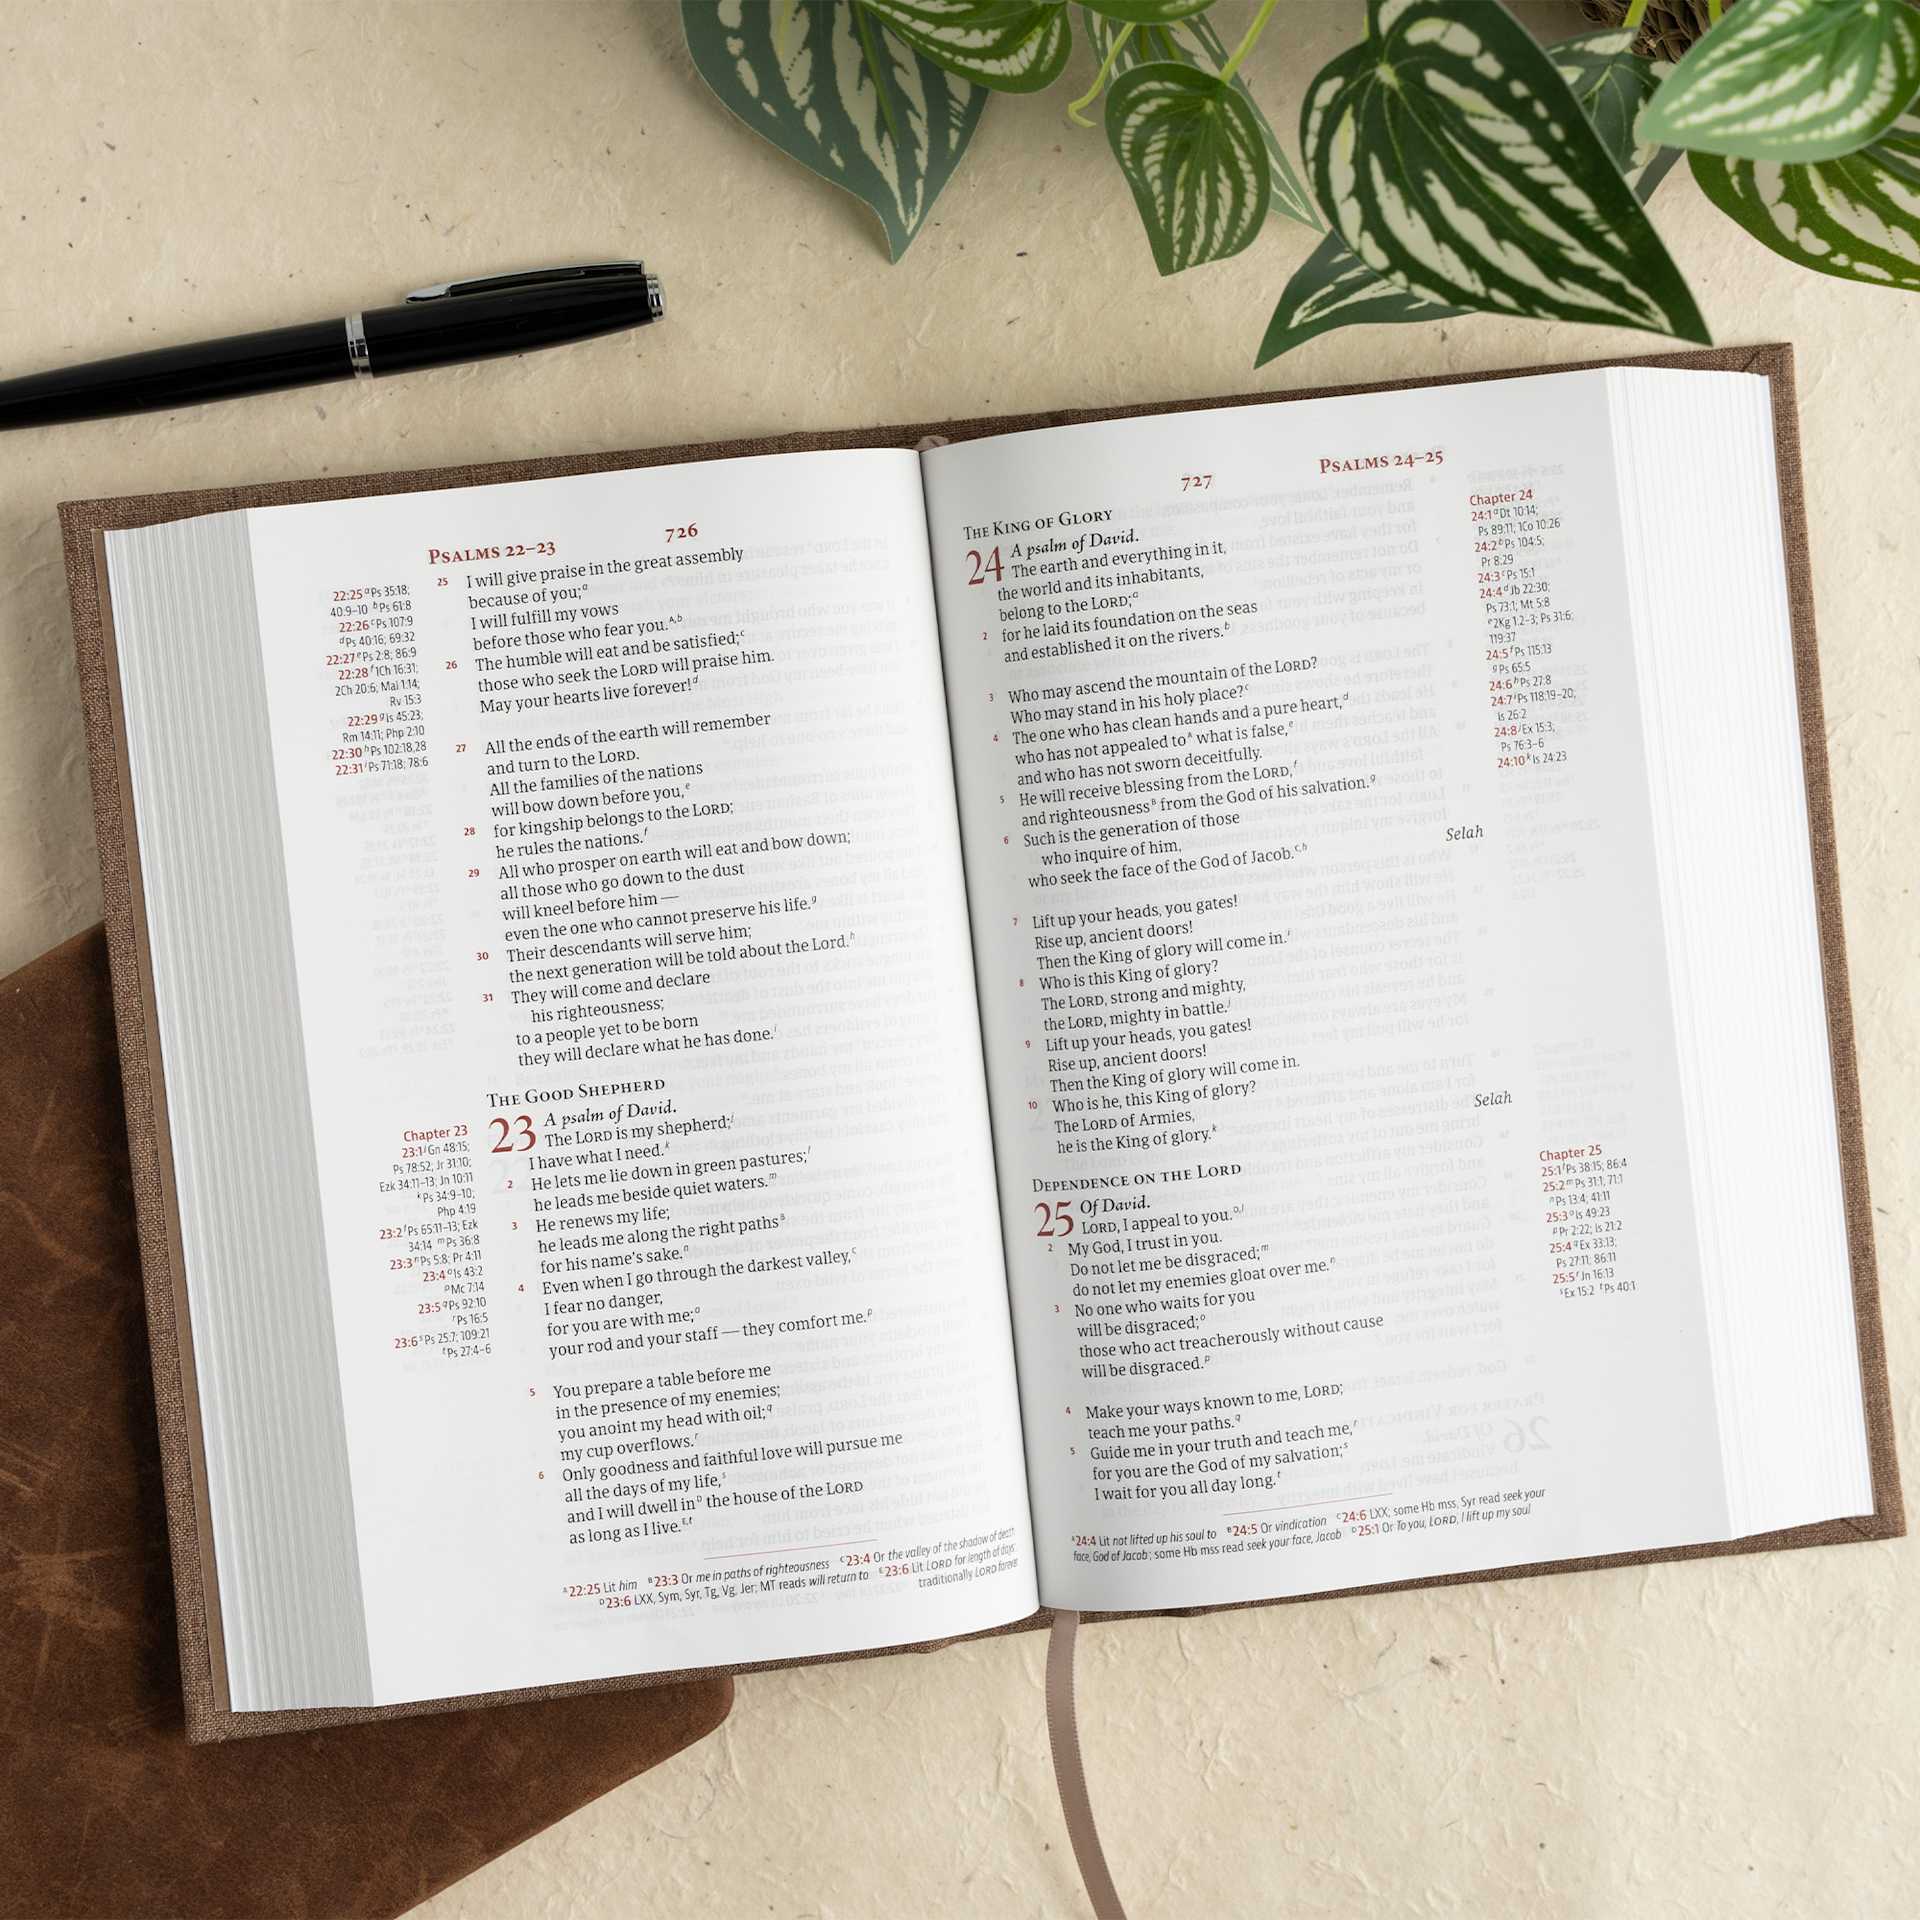 PSALMS 22–23
726
25 I will give praise in the great assembly
because of you;a
I will fulfill my vows
before those who fear you.A,b
26 The humble will eat and be satisfied;c
those who seek the LORD will praise him.
May your hearts live forever!d
27 All the ends of the earth will remember
and turn to the LORD.
All the families of the nations
will bow down before you,e
28 for kingship belongs to the LORD;
he rules the nations.f
29 All who prosper on earth will eat and bow down;
all those who go down to the dust
will kneel before him —
even the one who cannot preserve his life.g
30 Their descendants will serve him;
the next generation will be told about the Lord.h
31 They will come and declare
his righteousness;
to a people yet to be born
they will declare what he has done.i
22:25 aPs 35:18;
40:9–10 bPs 61:8
22:26 cPs 107:9
dPs 40:16; 69:32
22:27 ePs 2:8; 86:9
22:28 f1Ch 16:31;
2Ch 20:6; Mal 1:14;
Rv 15:3
22:29 gIs 45:23;
Rm 14:11; Php 2:10
22:30 hPs 102:18,28
22:31 iPs 71:18; 78:6
THE GOOD SHEPHERD
23 A psalm of David.
The LORD is my shepherd;j
I have what I need.k
2 He lets me lie down in green pastures;l
he leads me beside quiet waters.m
3 He renews my life;
he leads me along the right pathsB
for his name's sake.n
4 Even when I go through the darkest valley,C
I fear no danger,
for you are with me;o
your rod and your staff — they comfort me.p
5 You prepare a table before me
in the presence of my enemies;
you anoint my head with oil;q
my cup overflows.r
6 Only goodness and faithful love will pursue me
all the days of my life,s
and I will dwell inD the house of the LORD
as long as I live.E,t
Chapter 23
23:1 jGn 48:15;
Ps 78:52; Jr 31:10;
Ezk 34:11–13; Jn 10:11
kPs 34:9–10;
Php 4:19
23:2 lPs 65:11–13; Ezk
34:14 mPs 36:8
23:3 nPs 5:8; Pr 4:11
23:4 oIs 43:2
pMc 7:14
23:5 qPs 92:10
rPs 16:5
23:6 sPs 25:7; 109:21
tPs 27:4–6
A22:25 Lit him B23:3 Or me in paths of righteousness C23:4 Or the valley of the shadow of death
D23:6 LXX, Sym, Syr, Tg, Vg, Jer; MT reads will return to E23:6 Lit LORD for length of days;
traditionally LORD forever
727
PSALMS 24–25
THE KING OF GLORY
24 A psalm of David.
The earth and everything in it,
the world and its inhabitants,
belong to the LORD;a
2 for he laid its foundation on the seas
and established it on the rivers.b
3 Who may ascend the mountain of the LORD?
Who may stand in his holy place?c
4 The one who has clean hands and a pure heart,d
who has not appealed toA what is false,e
and who has not sworn deceitfully.
5 He will receive blessing from the LORD,f
and righteousnessB from the God of his salvation.g
6 Such is the generation of those
who inquire of him,
who seek the face of the God of Jacob.C,h
Selah
7 Lift up your heads, you gates!
Rise up, ancient doors!
Then the King of glory will come in.i
8 Who is this King of glory?
The LORD, strong and mighty,
the LORD, mighty in battle.j
9 Lift up your heads, you gates!
Rise up, ancient doors!
Then the King of glory will come in.
10 Who is he, this King of glory?
The LORD of Armies,
he is the King of glory.k
Selah
Chapter 24
24:1 aDt 10:14;
Ps 89:11; 1Co 10:26
24:2 bPs 104:5;
Pr 8:29
24:3 cPs 15:1
24:4 dJb 22:30;
Ps 73:1; Mt 5:8
e2Kg 1:2–3; Ps 31:6;
119:37
24:5 fPs 115:13
gPs 65:5
24:6 hPs 27:8
24:7 iPs 118:19–20;
Is 26:2
24:8 jEx 15:3;
Ps 76:3–6
24:10 kIs 24:23
DEPENDENCE ON THE LORD
25 Of David.
LORD, I appeal to you.D,l
2 My God, I trust in you.
Do not let me be disgraced;m
do not let my enemies gloat over me.n
3 No one who waits for you
will be disgraced;o
those who act treacherously without cause
will be disgraced.p
4 Make your ways known to me, LORD;
teach me your paths.q
5 Guide me in your truth and teach me,r
for you are the God of my salvation;s
I wait for you all day long.t
Chapter 25
25:1 lPs 38:15; 86:4
25:2 mPs 31:1; 71:1
nPs 13:4; 41:11
25:3 oIs 49:23
pPr 2:22; Is 21:2
25:4 qEx 33:13;
Ps 27:11; 86:11
25:5 rJn 16:13
sEx 15:2 tPs 40:1
A24:4 Lit not lifted up his soul to B24:5 Or vindication C24:6 LXX; some Hb mss, Syr read seek your
face, God of Jacob; some Hb mss read seek your face, Jacob D25:1 Or To you, LORD, I lift up my soul